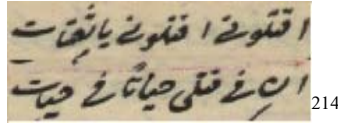 اقتلونے اقتلونے یا ثِقات
اِن فے قتلی حیاتًا فے حیات
214